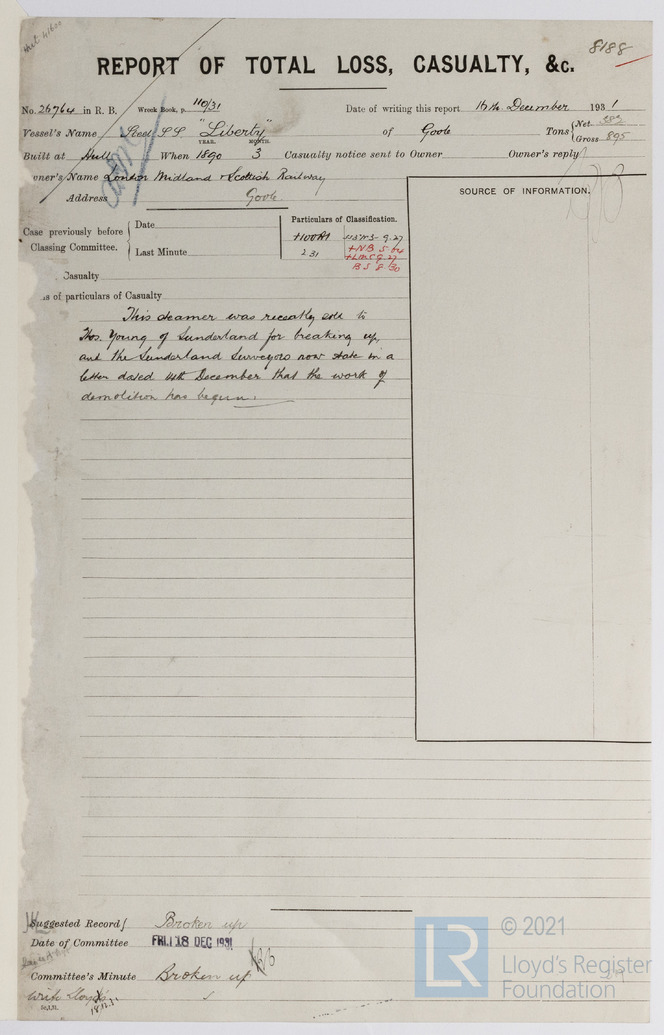 8188
REPORT OF TOTAL LOSS, CASUALTY, &c.
No. 26764 in R. B. Wreck Book, p. 110/31 Date of writing this report 16th December 1931
Vessel's Name Steel S.S. "Liberty" of Goole Tons { Net 383
Gross 895
YEAR. MONTH.
Built at Hull When 1890 3 Casualty notice sent to Owner Owner's reply
wner's Name London Midland & Scottish Railway
Address Goole
SOURCE OF INFORMATION.
Case previously before Classing Committee. { Date
Last Minute
Particulars of Classification.
+100A1
2 31
SSNo3- 9.27
+NB 5.04
+LMS 9.27
BS 8/30
Casualty
of particulars of Casualty
This steamer was recently sold to
Thos. Young of Sunderland for breaking up,
and the Sunderland Surveyors now state in a
letter dated 14th December that the work of
demolition has begun.
Suggested Record Broken up
Date of Committee FRI. 18 DEC 1931
Committee's Minute Broken up
Write Lloyd's
18.12.31
LR
© 2021
Lloyd's Register
Foundation